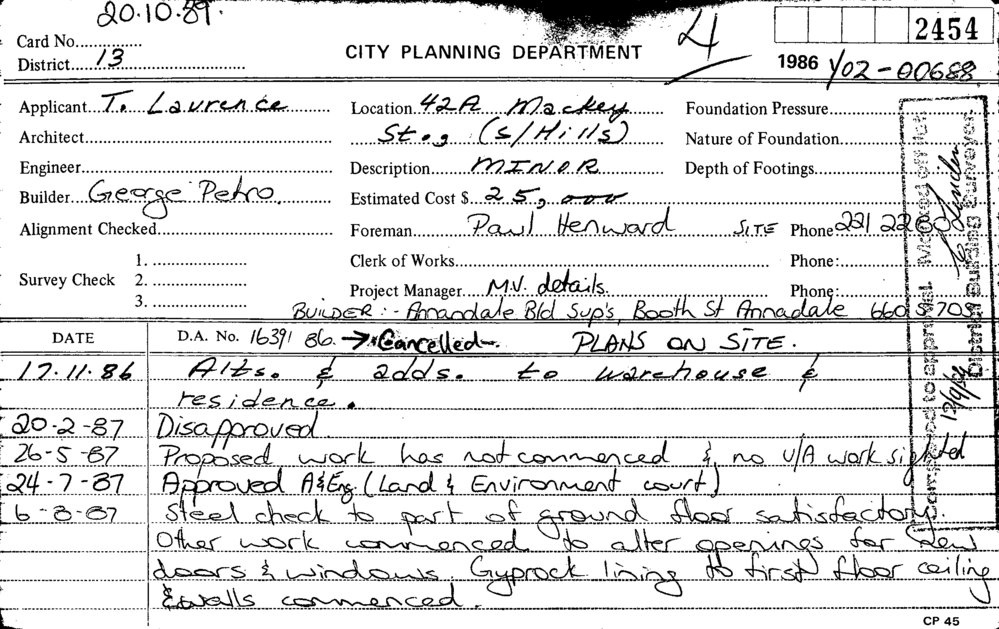 20.10.89.
4
2454
Card No.
CITY PLANNING DEPARTMENT
District 13
1986 Y02-00688
Applicant T. Laurence Location 42A Mackey Foundation Pressure
Architect St., (S/Hills) Nature of Foundation
Engineer Description MINOR Depth of Footings
Builder George Petro. Estimated Cost $ 25,000
Alignment Checked Foreman Paul Henward SITE Phone 221 2260
1. Clerk of Works Phone:
Survey Check 2.
3. Project Manager M.V. details. Phone:
BUILDER :- Annandale Bld Sup's, Booth St Annadale 660 5703
DATE D.A. No. 1639/86. → Cancelled PLANS ON SITE.
17.11.86 Alts. & adds. to warehouse &
residence.
20-2-87 Disapproved
26-5-87 Proposed work has not commenced & no U/A work sighted
24-7-87 Approved A&Eng. (Land & Environment court)
6-8-87 Steel check to part of ground floor satisfactory.
Other work commenced to alter openings for new
doors & windows. Gyprock lining to first floor ceiling
& walls commenced.
District Building Surveyor
CP 45